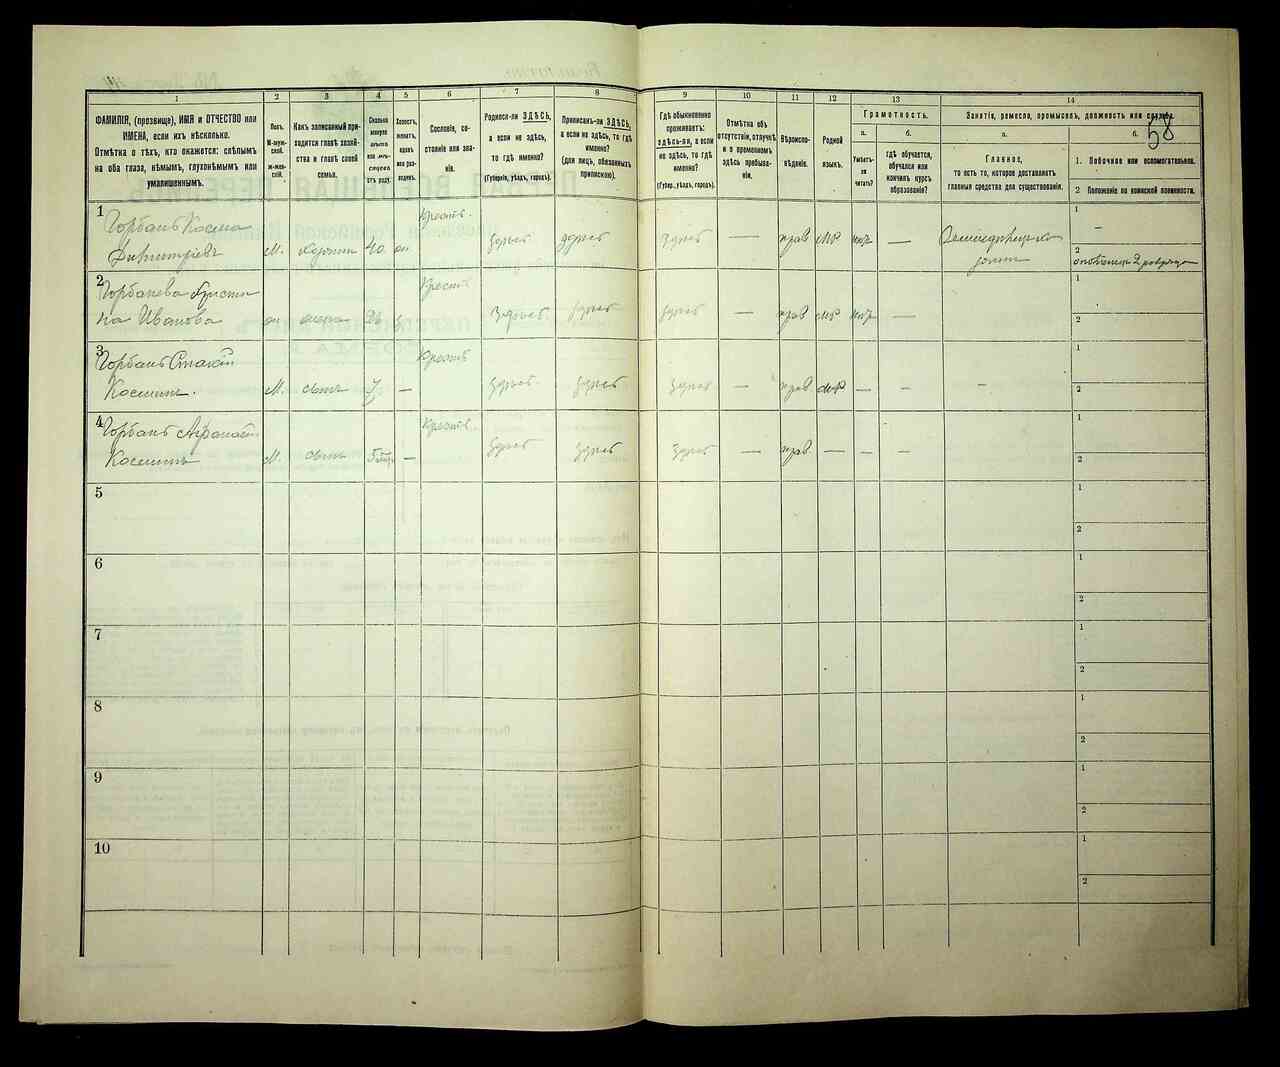 58
1
2
3
4
5
6
7
8
9
10
11
12
13
14
ФАМИЛІЯ, (прозвище), ИМЯ и ОТЧЕСТВО или
ИМЕНА, если ихъ нѣсколько.
Отмѣтка о тѣхъ, кто окажется: слѣпымъ
на оба глаза, нѣмымъ, глухонѣмымъ или
умалишеннымъ.
Полъ.
М-муж-
ской.
ж-жен-
скій.
Какъ записанный при-
ходится главѣ хозяй-
ства и главѣ своей
семьи.
Сколько
минуло
лѣтъ
или мѣ-
сяцевъ
отъ роду.
Холостъ,
женатъ,
вдовъ
или раз-
веденъ.
Сословіе, со-
стояніе или зва-
ніе.
Родился-ли ЗДѢСЬ,
а если не здѣсь,
то гдѣ именно?
(Губернія, уѣздъ, городъ).
Приписанъ-ли ЗДѢСЬ,
а если не здѣсь, то гдѣ
именно?
(для лицъ, обязанныхъ
припискою).
Гдѣ обыкновенно
проживаетъ:
здѣсь-ли, а если
не здѣсь, то гдѣ
именно?
(Губер., уѣздъ, городъ).
Отмѣтка объ
отсутствіи, отлучкѣ
и о временномъ
здѣсь пребыва-
ніи.
Вѣроиспо-
вѣданіе.
Родной
языкъ.
Грамотность.
а.
Умѣетъ-
ли
читать?
б.
гдѣ обучается,
обучался или
кончилъ курсъ
образованія?
Занятіе, ремесло, промыселъ, должность или служба.
а.
Главное,
то есть то, которое доставляетъ
главныя средства для существованія.
б.
1. Побочное или вспомогательное.
2 Положеніе по воинской повинности.
1
Горбань Косма
Димитріевъ
М.
40
Крестъ.
здѣсь
здѣсь
здѣсь
—
прав
мр
—
1
—
2
2
Горбанева Христи
на Иванова
Крестъ
здѣсь
здѣсь
здѣсь
—
прав
мр
—
1
2
3
Горбань
Косминъ.
М.
сынъ
7
—
Крестъ
здѣсь
здѣсь
здѣсь
—
прав
мр
—
—
—
1
2
4
Горбань Афанасій
Косминъ
М.
сынъ
—
Крестъ.
здѣсь
здѣсь
здѣсь
—
прав.
—
—
—
1
2
5
1
2
6
1
2
7
1
2
8
1
2
9
1
2
10
1
2